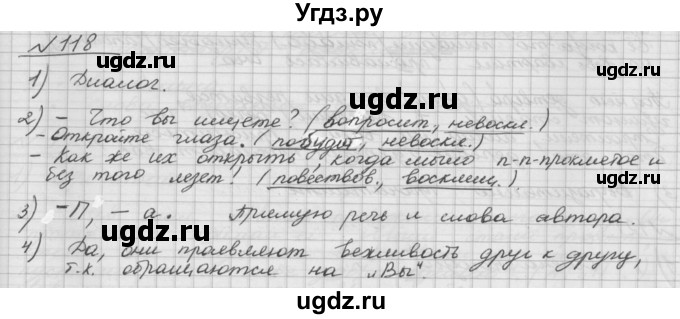 Угдз.ру
№118
1) Диалог.
2) - Что вы ищете? (вопросит., невоскл.)
- Откройте глаза. (побудит., невоскл.)
- Как же их открыть, когда мыло п-п-проклятое и
без того лезет! (повествов., восклиц.)
3) - П, - а. Прямую речь и слова автора.
4) Да, они проявляют вежливость друг к другу,
т.к. обращаются на „Вы".
ugdz.ru
ugdz.ru
ugdz.ru
ugdz.ru
ugdz.ru
ugdz.ru
ugdz.ru
ugdz.ru
ugdz.ru